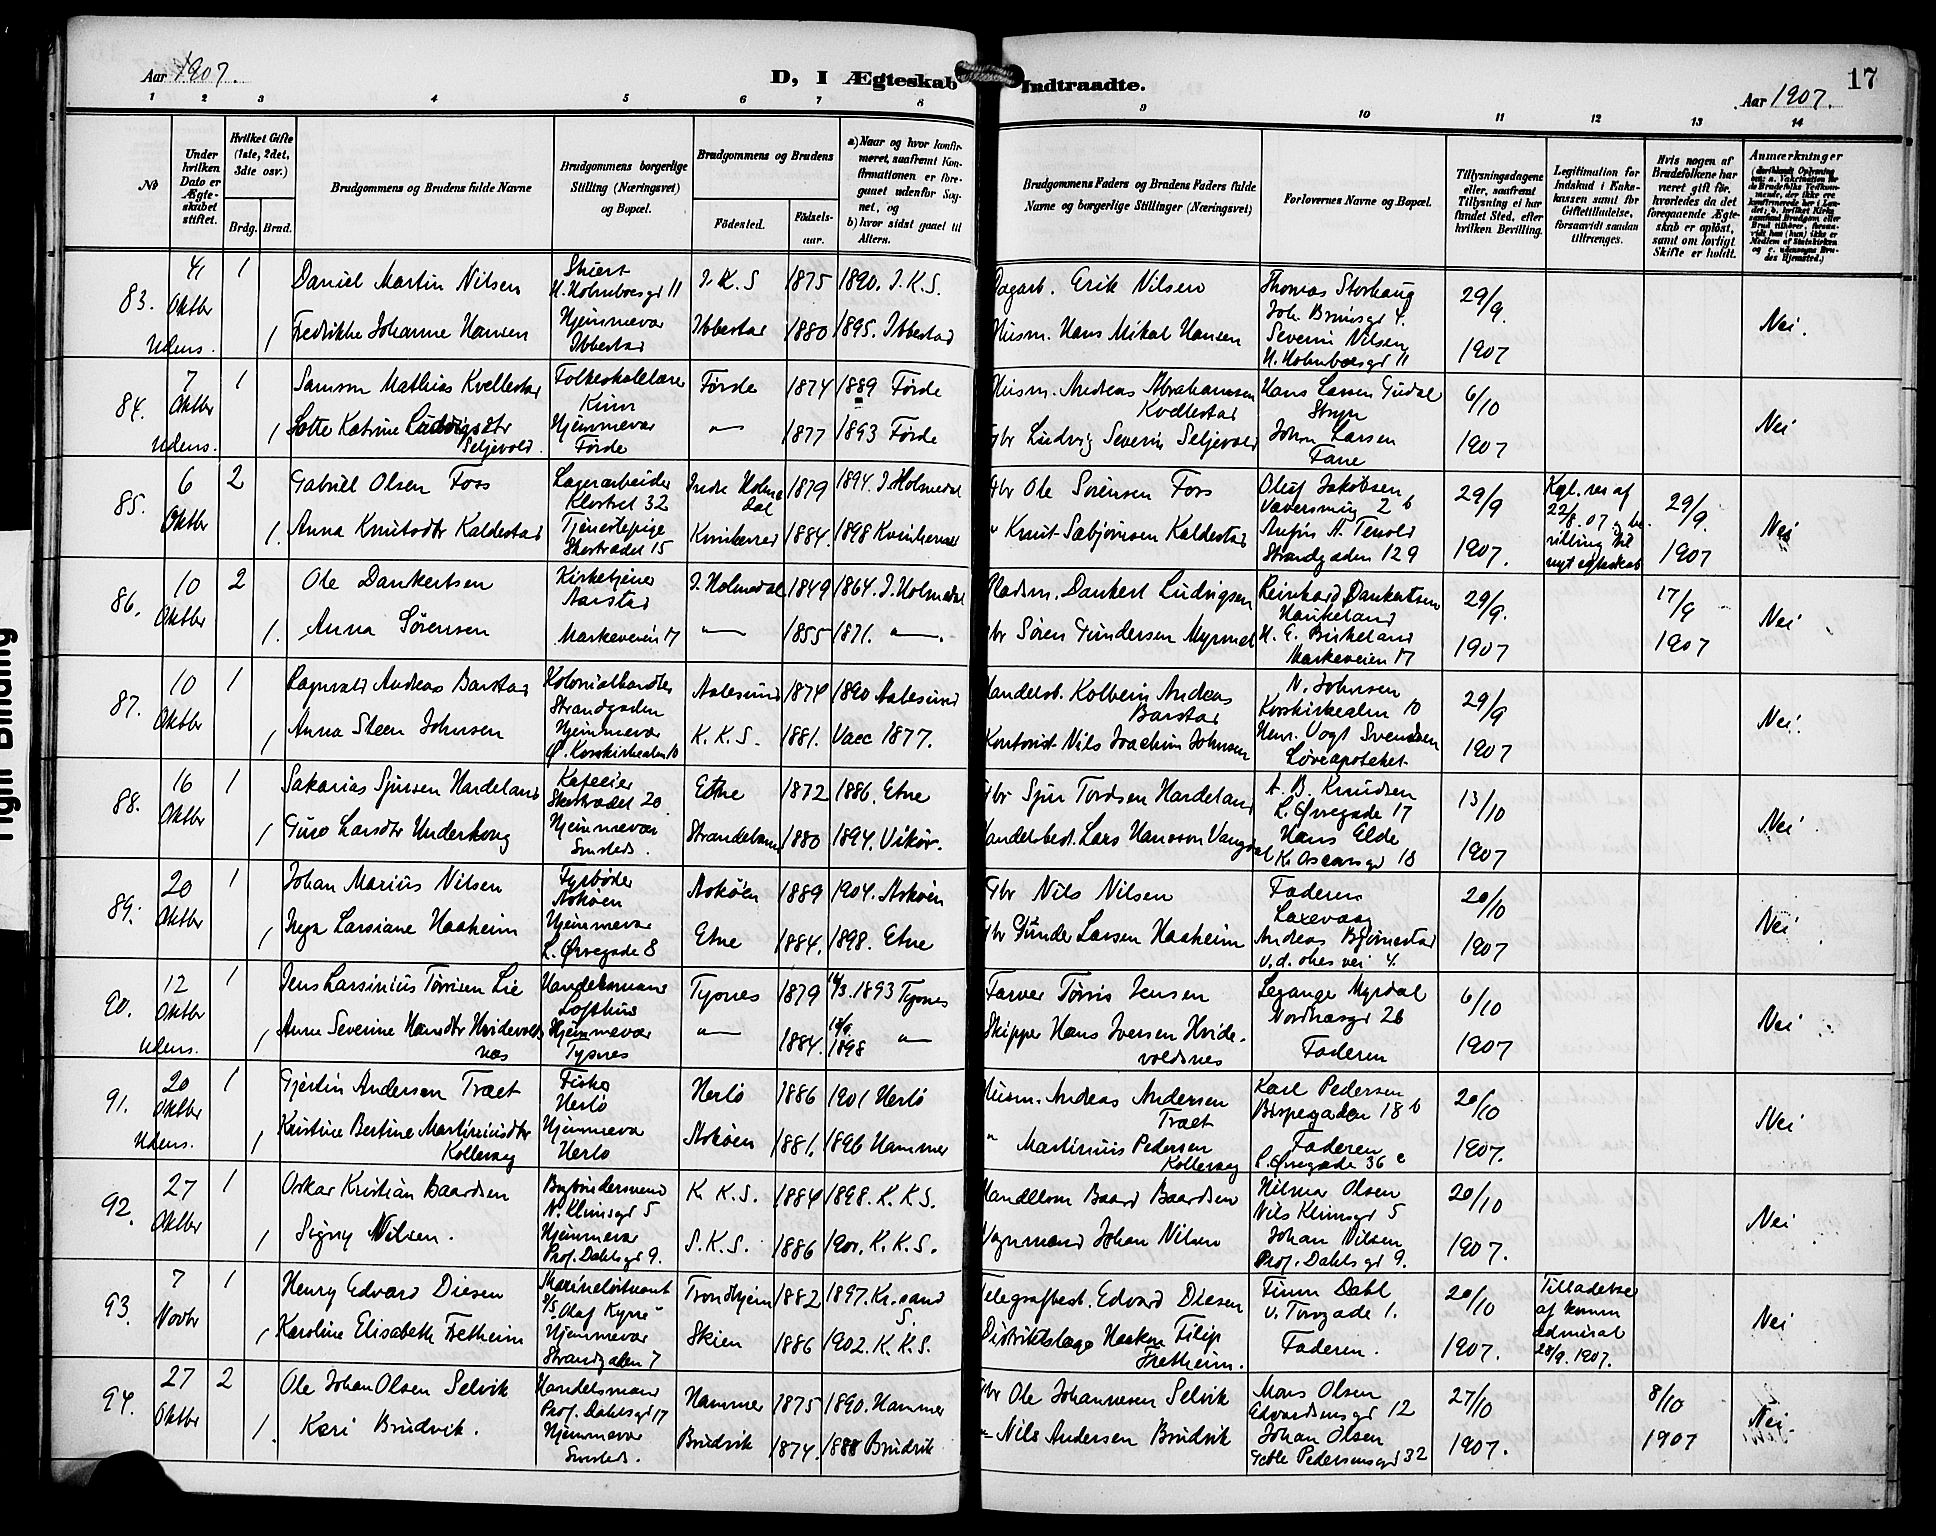 Aar 1907.
D, I Ægteskab Indtraadte.
17
Aar 1907.
1 2 3 4 5 6 7 8 9 10 11 12 13 14
No
Under hvilken Dato er Ægteskabet stiftet.
Hvilket Gifte (1ste, 2det, 3die osv.)
Brdg. Brud.
Brudgommens og Brudens fulde Navne
Brudgommens borgerlige Stilling (Næringsvei) og Bopæl.
Brudgommens og Brudens
Fødested.
Fødselsaar.
a) Naar og hvor konfirmeret, saafremt Konfirmationen er foregaaet udenfor Sognet, og
b) hvor sidst gaaet til Alters.
Brudgommens Faders og Brudens Faders fulde Navne og borgerlige Stillinger (Næringsvei)
Forlovernes Navne og Bopæl.
Tillysningsdagene eller, saafremt Tillysning ei har fundet Sted, efter hvilken Bevilling.
Legitimation for Indskud i Enkekassen samt for Giftetilladelse, forsaavidt saadan tiltrænges.
Hvis nogen af Brudefolkene har været gift før, hvorledes da det foregaaende Ægteskab er opløst, samt om lovligt Skifte er holdt.
Anmærkninger
83. 4 Oktbr Udens. 1
Daniel Martin Nilsen
H. Holmboesgd 11
J. K. S 1875 1890. J. K. S.
Dagarb. Erik Nilsen
Thomas Storhaug
Joh. Bruunsgd 4.
29/9. 1907
Nei.
1 Fredrikke Johanne Hansen
Hjemmevær
Ibbestad
Ibbestad 1880 1895. Ibbestad
Husm. Hans Mikal Hansen
Severin Nilsen
H. Holmboesgd 11
84. 7 Oktbr Udens. 1
Samson Mathias Kvellestad
Folkeskolelærer
Kinn
Førde 1874 1889 Førde
Husm. Andreas Abrahamsen
Kvellestad
Hans Larsen Gudal
Stryn
6/10 1907
Nei
1 Lotte Katrine Ludvigsdtr
Seljevold.
Hjemmevær
Førde
" 1877 1893 Førde
Gbr Ludvig Severin Seljevold
Johan Larsen
Fane
85. 6 Oktbr 2
Gabriel Olsen Foss
Lagerarbeider
Klostret 32
Indre Holmedal 1879 1894. I Holmedal
Gbr Ole Sørensen Foss
Oluf Jakobsen
Væversmug 2 b
29/9 1907.
Kgl. res af
22/8. 07
nyt ægteskab
29/9. 1907
Nei
1. Anna Knutsdtr Kaldestad
Tjenestepige
Skostrædet 15
Kvinherred 1884. 1898 Kvinherred
" Knut Sæbjørnsen Kaldestad
Anfin A. Tenold
Strandgaden 129
86. 10 Oktbr 2
Ole Dankertsen
Kirketjener
Aarstad
I. Holmedal 1849 1864. I. Holmedal
Pladsm. Dankert Ludvigsen
Reinhard Dankertsen
Haukeland
29/9. 1907
17/9 1907
Nei
1. Anna Sørensen
Markeveien 17
" 1855 1871. ".
Gbr Søren Gundersen Myrmel
H. E. Birkeland
Markeveien 17
87. 10 Oktbr 1
Ragnvald Andreas Barstad
Kolonialhandler
Strandgaden
Aalesund 1874 1890 Aalesund
Handelsb. Kolbein Andreas
Barstad
N. Johnsen
Korskirkealm 10
29/9 1907
Nei.
1 Anna Steen Johnsen
Hjemmevær
Ø. Korskirkealm 10
K. K. S. 1881. Vacc 1877.
Kontorist Nils Joachim Johnsen
Henr. Vogt Svendsen
Løveapoteket
88. 16 Oktbr 1
Sakarias Sjursen Hardeland
Kafeeier
Skostrædet 20
Etne 1872 1886. Etne
Gbr Sjur Tordsen Hardeland
A. B. Knudsen
L. Øvregade 17
13/10 1907
Nei
1 Guro Larsdtr Underhoug
Hjemmevær
Smsteds.
Strandebarm 1880 1894. Vikør.
Handelsbest. Lars Hansson Vangdal
Hans Elde
K. Oscarsgd 18
89. 20 Oktbr 1
Johan Marius Nilsen
Fyrbøder
Askøen
Askøen 1889 1904. Askøen
Gbr Nils Nilsen
Faderen
Laxevaag
20/10 1907
Nei
1 Inga Larsiane Haaheim
Hjemmevær
L. Øvregade 8
Etne 1884. 1898. Etne
Gbr Gunder Larsen Haaheim
Andreas Bjørnestad
90. 12 Oktbr Udens. 1
Jens Larsinius Tørrisen Lie
Handelsmand
Lofthus
Tysnes 1879 1893 Tysnes
Farver Tørris Jensen
Legange Myrdal
Nordnæsgd 26
6/10 1907
Nei
1 Anna Severine Hansdtr Hvidevoldsnæs
Hjemmevær
Tysnes
" 1884. 1898 "
Skipper Hans Iversen Hvidevoldsnes
Faderen
91. 20 Oktbr Udens. 1
Gjertin Andersen Træet
Fisker
Herlø
Herlø 1886 1901 Herlø
Husm. Andreas Andersen
Træet
Karl Pedersen
Bispegaden 18 b
20/10 1907.
Nei
1 Kristine Bertine Martiniusdtr
Kollevaag
Hjemmevær
Herlø
Askøen 1881. 1896 Hammer
" Martinius Pedersen
Kollevaag
Faderen
L. Øvregade 36 c
92. 27 Oktbr 1
Oskar Kristian Baardsen
N. Klimsgd 5
K. K. S. 1884 1898. K. K. S.
Handelsm Baard Baardsen
Hilmar Olsen
Nils Klimsgd 5
20/10 1907.
Nei
1 Signy Nilsen.
Hjemmevær
Prof. Dahlsgd 9.
S. K. S. 1886 1901. K. K. S.
Vognmand Johan Nilsen
Johan Nilsen
Prof. Dahlsgd 9.
93. 7 Novbr 1
Henry Edvard Diesen
Marineløitnant
P/S "Olaf Kyrre"
Trondhjem 1882 1897. Kr.sand S.
Telegrafbest. Edvard Diesen
Finn Dahl
V. Torvgade 1.
20/10 1907.
Tilladelse
af komm
admiral
28/9. 1907.
Nei
1 Karoline Elisabeth Fretheim
Hjemmevær
Strandgaden 7
Skien 1886 1902. K. K. S.
Distriktslæge Haakon Filip
Fretheim.
Faderen.
94. 27 Oktbr 2
Ole Johan Olsen Selvik
Handelsmand
Prof. Dahlsgd 17
Hammer 1875 1890. Hammer
Gbr Ole Johannesen Selvik
Mons Olsen
Edvardsensgd 12
27/10 1907.
8/10 1907
Nei
1. Kari Brudvik.
Hjemmevær
Smsteds.
Brudvik 1874. 1888 Brudvik
" Nils Andersen Brudvik
Johan Olsen
Geble Pedersensgd 32
Right Binding